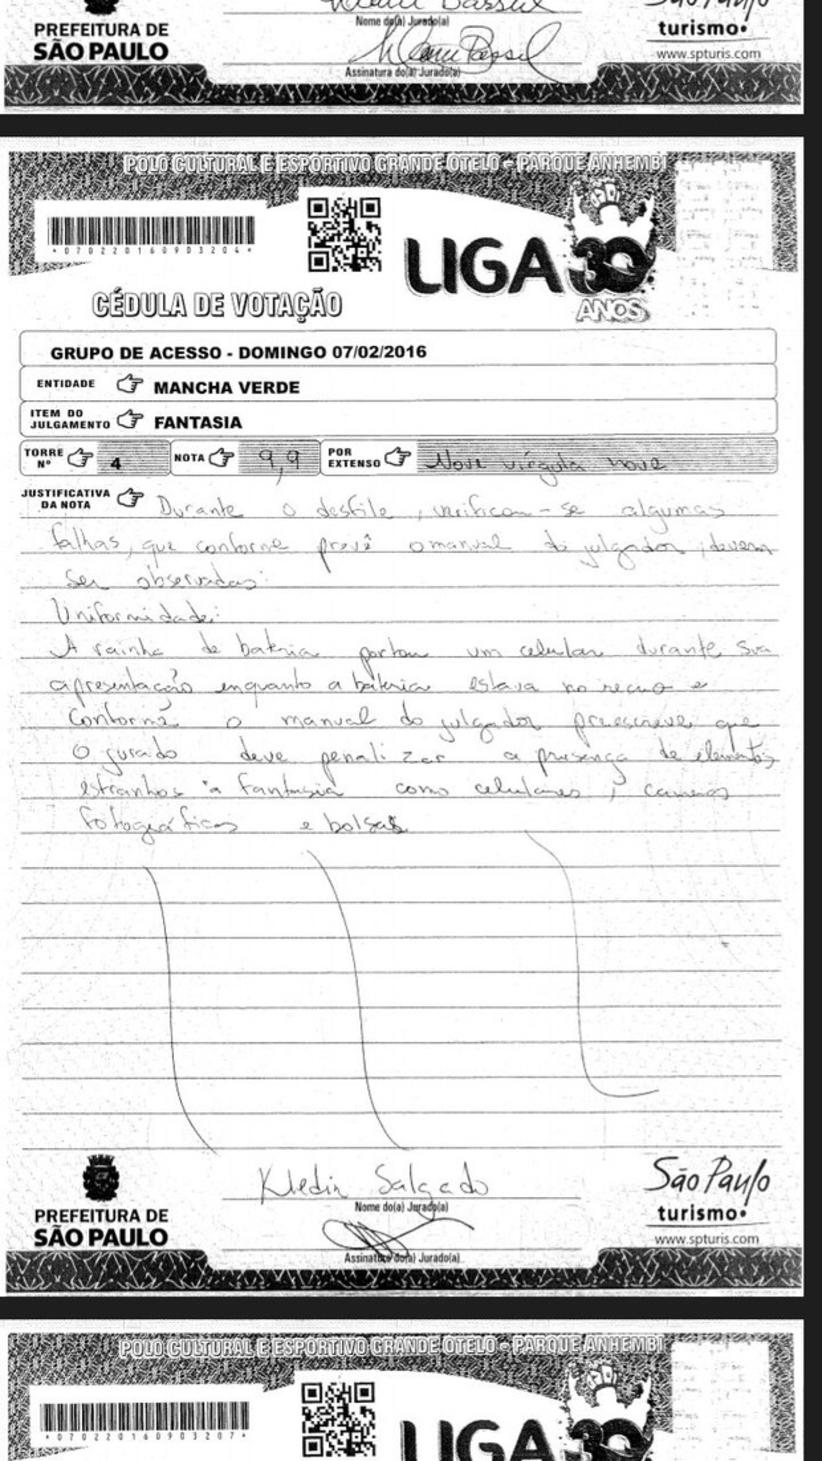 Nome do(a) Jurado(a)
PREFEITURA DE
SÃO PAULO
Assinatura do(a) Jurado(a)
São Paulo
turismo
www.spturis.com
POLO CULTURAL E ESPORTIVO GRANDE OTELO - PARQUE ANHEMBI
*070220160903204*
LIGA 30
ANOS
CÉDULA DE VOTAÇÃO
GRUPO DE ACESSO - DOMINGO 07/02/2016
ENTIDADE MANCHA VERDE
ITEM DO JULGAMENTO FANTASIA
TORRE Nº 4 NOTA 9,9 POR EXTENSO Nove vírgula nove
JUSTIFICATIVA DA NOTA Durante o desfile, verificou-se algumas
falhas, que conforme prevê o manual do julgador, devem
ser observadas:
Uniformidade:
A rainha de bateria portou um celular durante sua
apresentação enquanto a bateria estava no recuo e
conforme o manual do julgador preescreve que
o jurado deve penalizar a presença de elementos
estranhos a fantasia como celulares, cameras
fotográficas e bolsas
Kledir Salgado
Nome do(a) Jurado(a)
PREFEITURA DE
SÃO PAULO
Assinatura do(a) Jurado(a)
São Paulo
turismo
www.spturis.com
POLO CULTURAL E ESPORTIVO GRANDE OTELO - PARQUE ANHEMBI
*070220160903207*
LIGA 30